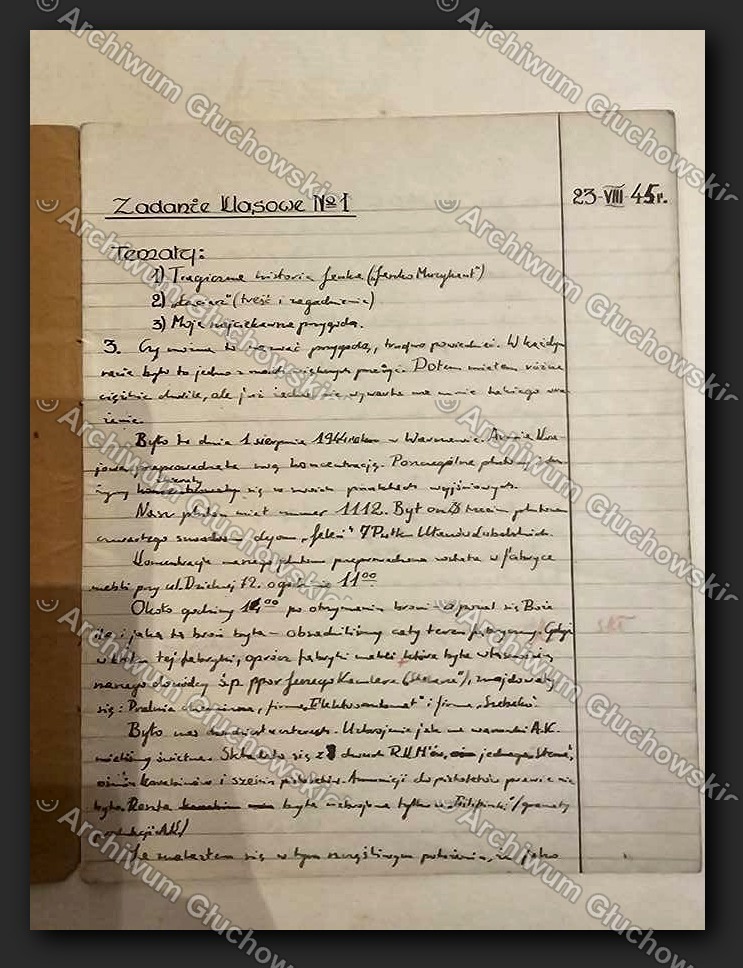 Zadanie klasowe № 1
23-VIII-45r.
Tematy:
1) Tragiczna historia Janka („Janko Muzykant")
2) „Łaciarz" (treść i zagadnienia)
3) Moja najciekawsza przygoda.
3. Czy można to nazwać przygodą, trudno powiedzieć. W każdym
razie było to jedno z moich większych przeżyć. Potem miałem różne
ciężkie chwile, ale już żadna nie wywarła na mnie takiego wra-
żenia.
Było to dnia 1 sierpnia 1944 roku w Warszawie. Armia Kra-
jowa przeprowadzała swą koncentrację. Poszczególne plutony i dru-
żyny zbierały się w swoich punktach wyjściowych.
Nasz pluton miał numer 1112. Był on trzecim plutonem
czwartego szwadronu dyonu „Jeleń" 7 Pułku Ułanów Lubelskich.
Koncentracja naszego plutonu przeprowadzona została w fabryce
mebli przy ul. Dzielnej 72. o godzinie 11⁰⁰
Około godziny 14⁰⁰ po otrzymaniu broni - a pożal się Boże
ile i jaka ta broń była - obsadziliśmy cały teren fabryczny. Gdyż
w bloku tej fabryki, oprócz fabryki mebli która była własnością
naszego dowódcy ś.p. ppor Jerzego Kamlera („Stolarza"), znajdowały
się: Pralnia chemiczna, firma „Elektroautomat" i firma „
Było nas dwudziestu czterech. Uzbrojenie jak na warunki A.K.
mieliśmy świetne. Składało się z dwóch R.K.M'ów, jednego „Stena",
ośmiu karabinów i sześciu pistoletów. Amunicji do pistoletów prawie nie
było. Reszta była uzbrojona tylko w „Filipinki" /granaty
produkcji AK/
Ja znalazłem się w tym szczęśliwym położeniu, że jako
© Archiwum Głuchowskich